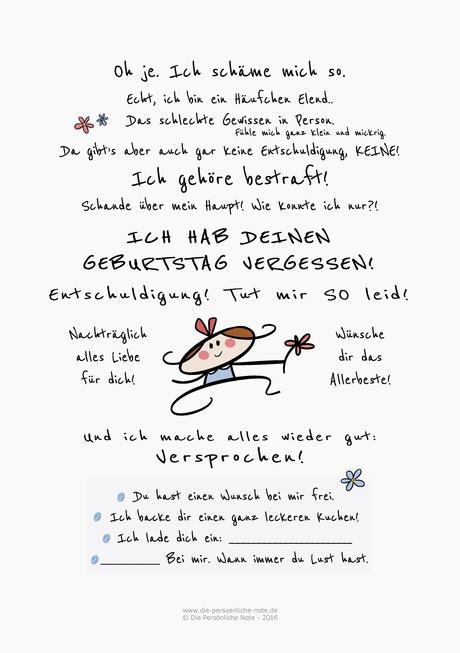 Oh je. Ich schäme mich so.
Echt, ich bin ein Häufchen Elend..
Das schlechte Gewissen in Person.
Fühle mich ganz klein und mickrig.
Da gibt's aber auch gar keine Entschuldigung, KEINE!
Ich gehöre bestraft!
Schande über mein Haupt! Wie konnte ich nur?!
ICH HAB DEINEN
GEBURTSTAG VERGESSEN!
Entschuldigung! Tut mir SO leid!
Nachträglich
alles Liebe
für dich!
Wünsche
dir das
Allerbeste!
Und ich mache alles wieder gut:
Versprochen!
Du hast einen Wunsch bei mir frei.
Ich backe dir einen ganz leckeren Kuchen!
Ich lade dich ein: ____________________
__________ Bei mir. Wann immer du Lust hast.
www.die-persoenliche-note.de
© Die Persönliche Note - 2016